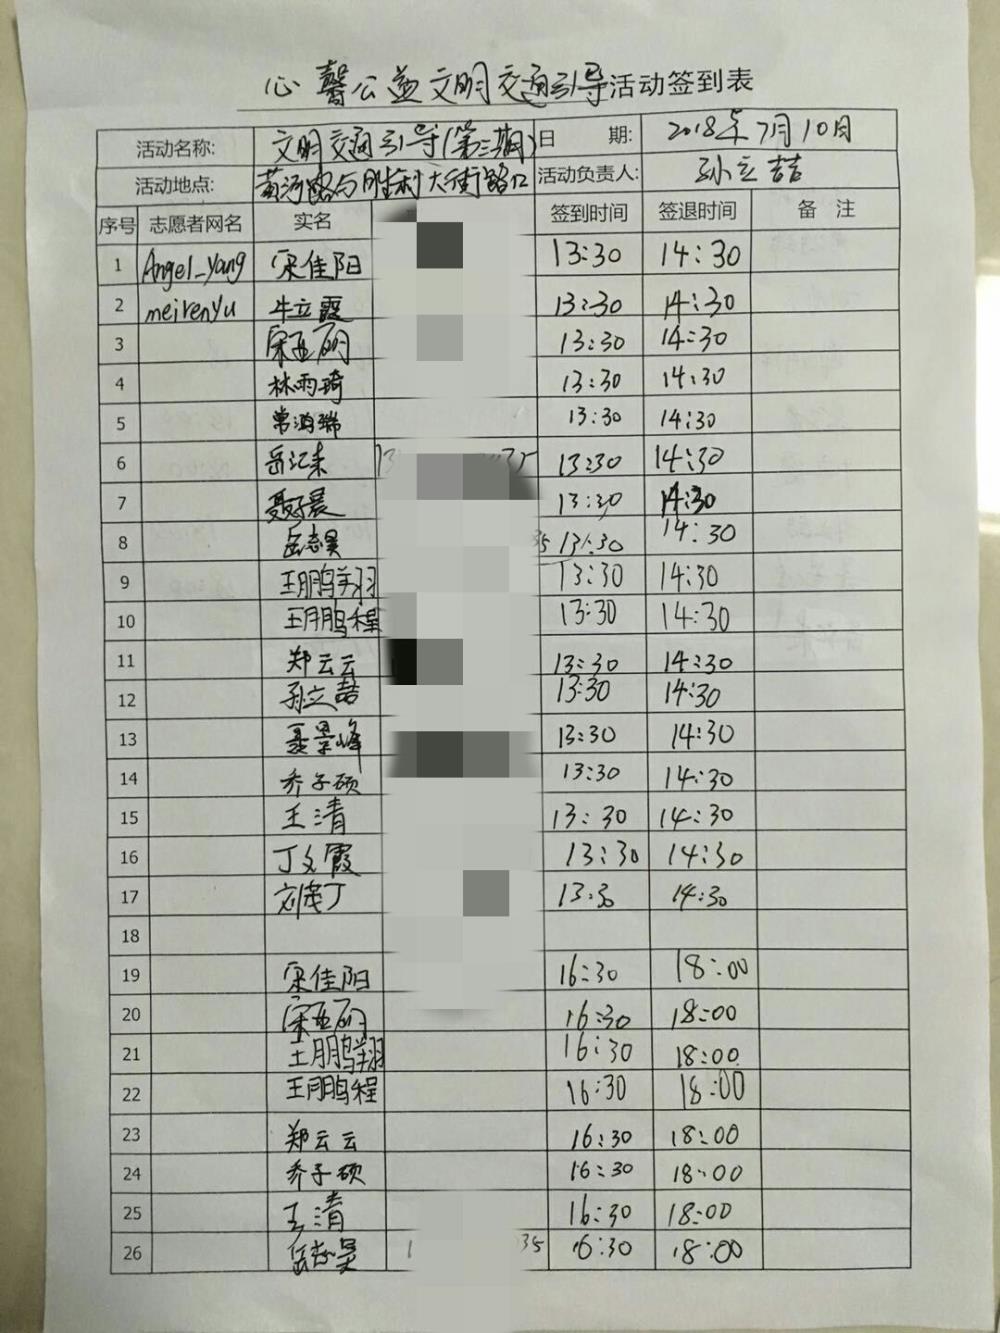 心馨公益文明交通引导活动签到表
活动名称: 文明交通引导(第三期) 日 期: 2018年7月10日
活动地点: 黄河路与胜利大街路口 活动负责人: 孙立喆
序号 志愿者网名 实名 签到时间 签退时间 备 注
1 Angel_yang 宋佳阳 13:30 14:30
2 meirenyu 牛立霞 13:30 14:30
3 宋亚丽 13:30 14:30
4 林雨琦 13:30 14:30
5 常鸿瑞 13:30 14:30
6 岳江末 13:30 14:30
7 聂好晨 13:30 14:30
8 岳志昊 35 13:30 14:30
9 王鹏翔羽 13:30 14:30
10 王鹏程 13:30 14:30
11 郑云云 13:30 14:30
12 孙立喆 13:30 14:30
13 聂景峰 13:30 14:30
14 乔子硕 13:30 14:30
15 王清 13:30 14:30
16 丁文霞 13:30 14:30
17 刘茂丁 13:30 14:30
18
19 宋佳阳 16:30 18:00
20 宋亚丽 16:30 18:00
21 王鹏翔羽 16:30 18:00
22 王鹏程 16:30 18:00
23 郑云云 16:30 18:00
24 乔子硕 16:30 18:00
25 王清 16:30 18:00
26 岳志昊 1 035 16:30 18:00